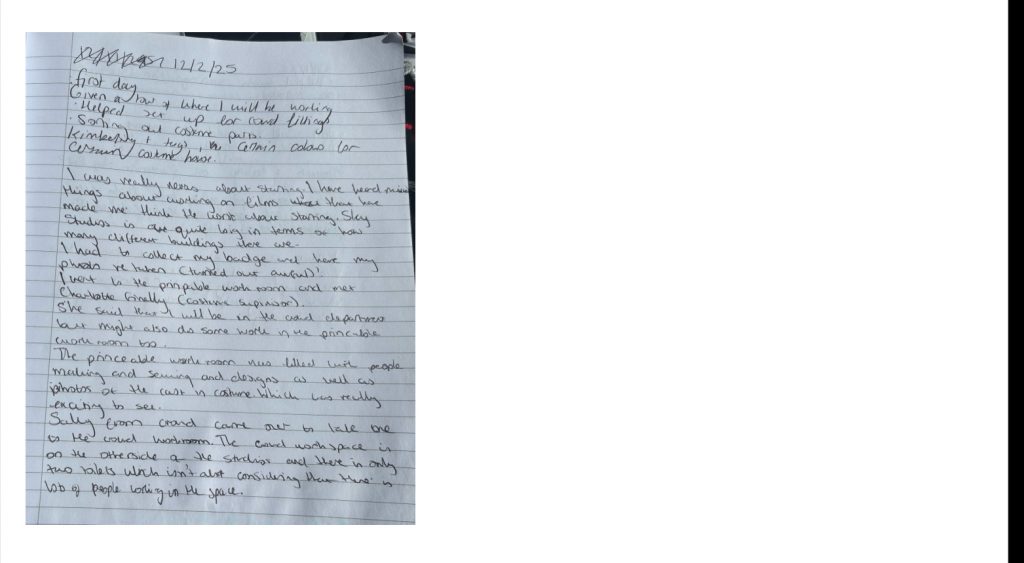 12/2/25
· first day
Given a tour of where I will be working
· Helped set up for crowd fittings
· Sorting out costume parts.
Kimberley + tags, the certain colour for
certain costume house.
I was really nervous about starting I have heard
things about working on films where that have
made me think the worst about starting. Sky
Studios is quite big in terms of how
many different buildings there are.
I had to collect my badge and have my
photo re taken (turned out awful)!
I went to the work room and met
Charlotte (costume supervisor).
She said that I will be in the crowd department
but might also do some work in the
work room too.
The work room was filled with people
making and sewing and designs as well as
photos of the cast in costume. Which was really
exciting to see.
Sally from crowd came out to take me
to the crowd workroom. The crowd work space is
on the otherside of the studios and there is only
two toilets which isn't alot considering that there is
lots of people working in the space.